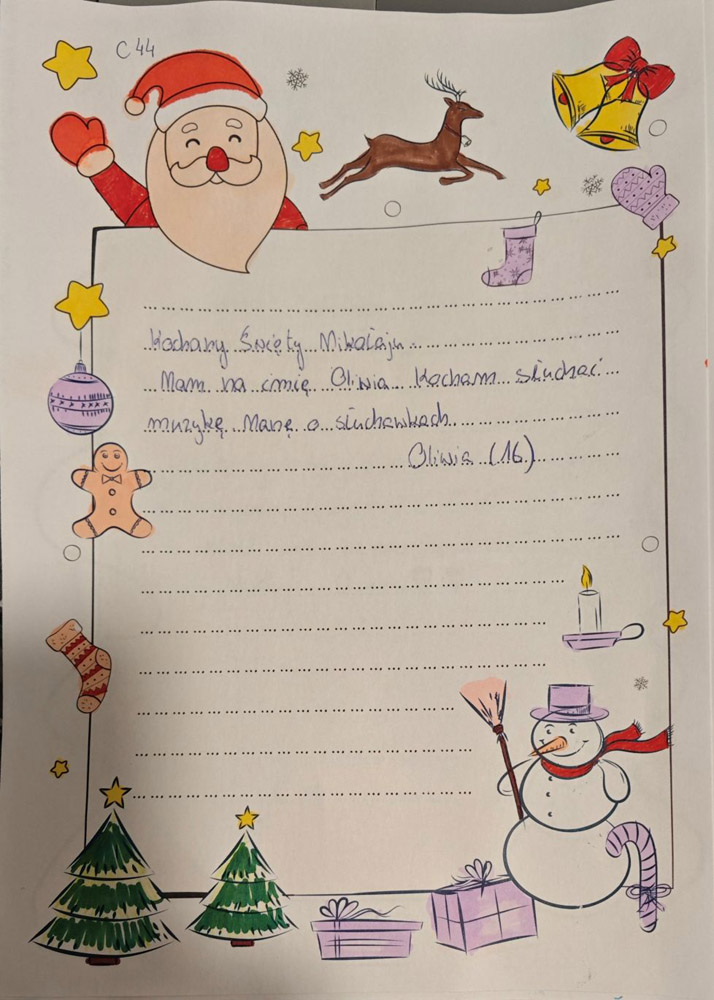 C 44
Kochany Święty Mikołaju.
Mam na imię Oliwia. Kocham słuchać
muzykę. Marzę o słuchawkach.
Oliwia (16)